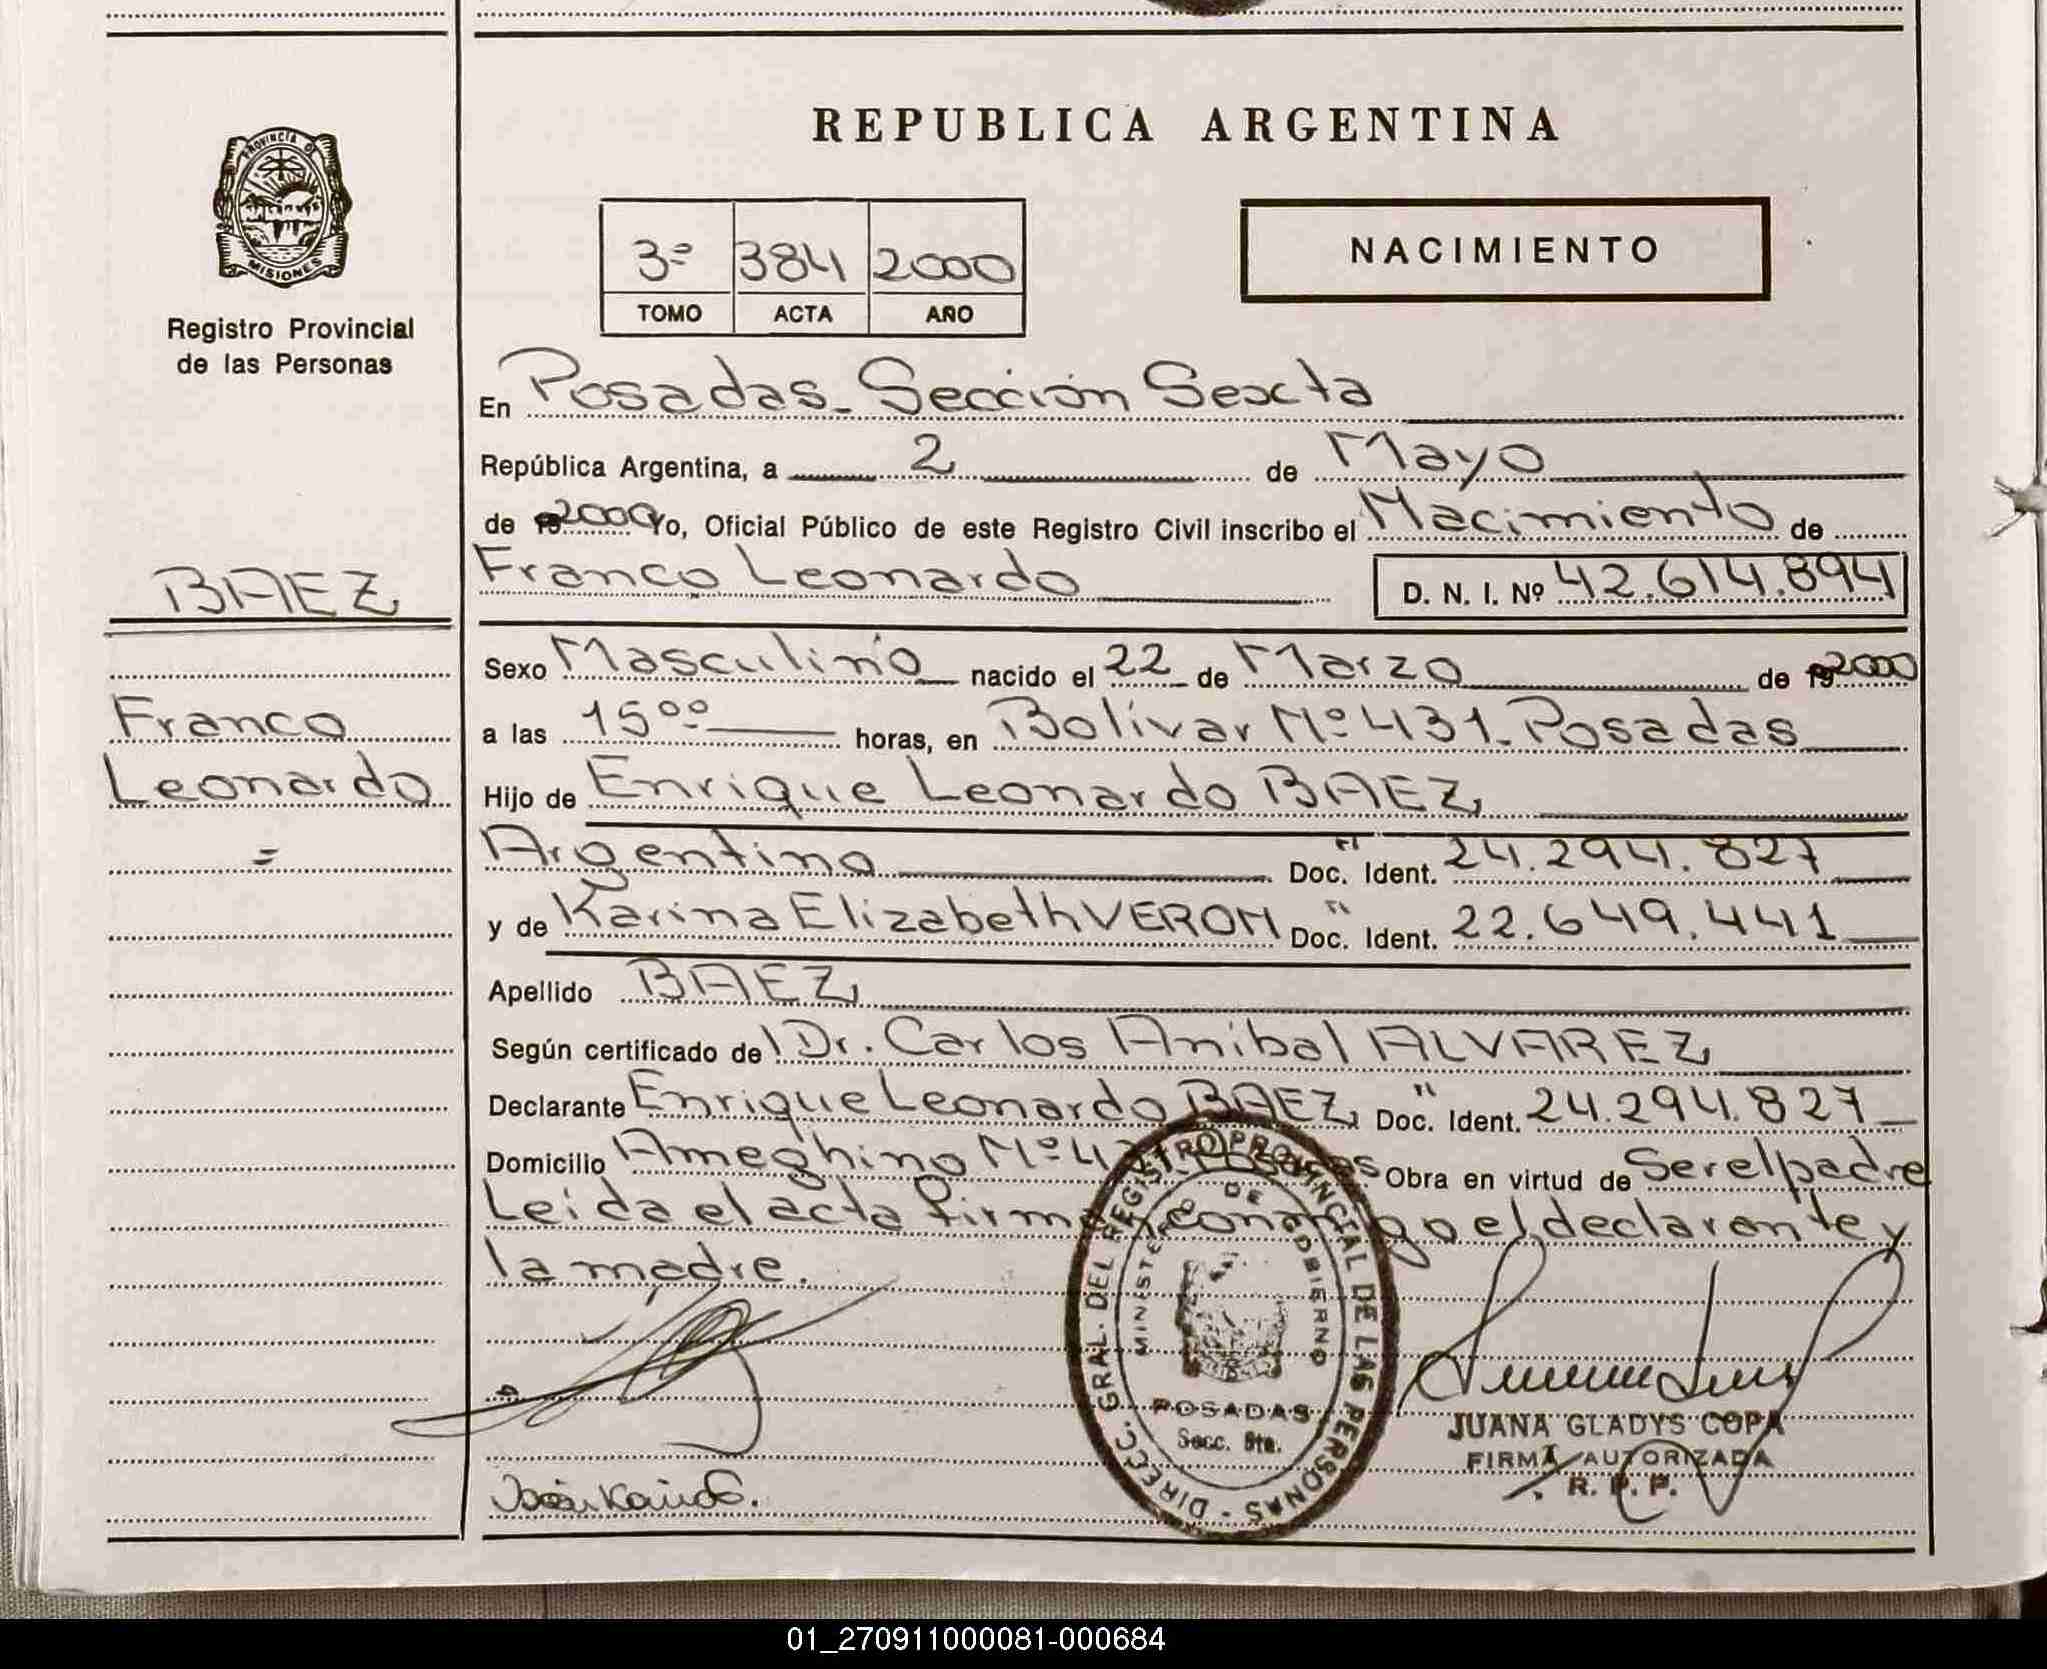 PROVINCIA DE
MISIONES
Registro Provincial
de las Personas
BAEZ
Franco
Leonardo
=
REPUBLICA ARGENTINA
3º 384 2000
TOMO ACTA AÑO
NACIMIENTO
En Posadas - Sección Sexta
República Argentina, a 2 de Mayo
de 2000 Yo, Oficial Público de este Registro Civil inscribo el Nacimiento de
Franco Leonardo D. N. I. Nº 42.614.894
Sexo Masculino nacido el 22 de Marzo de 2000
a las 15ºº horas, en Bolívar Nº 431 - Posadas
Hijo de Enrique Leonardo BAEZ
Argentino Doc. Ident. 24.294.827
y de Karina Elizabeth VERON Doc. Ident. 22.649.441
Apellido BAEZ
Según certificado de Dr. Carlos Anibal ALVAREZ
Declarante Enrique Leonardo BAEZ Doc. Ident. 24.294.827
Domicilio Ameghino Nº Posadas Obra en virtud de Ser el padre
Leida el acta firma conmigo el declarante y
la madre.
DIREC. GRAL. DEL REGISTRO PROVINCIAL DE LAS PERSONAS -
MINISTERIO DE GOBIERNO
POSADAS
Secc. 6ta.
JUANA GLADYS COPA
FIRMA AUTORIZADA
R. P. P.
01_270911000081-000684